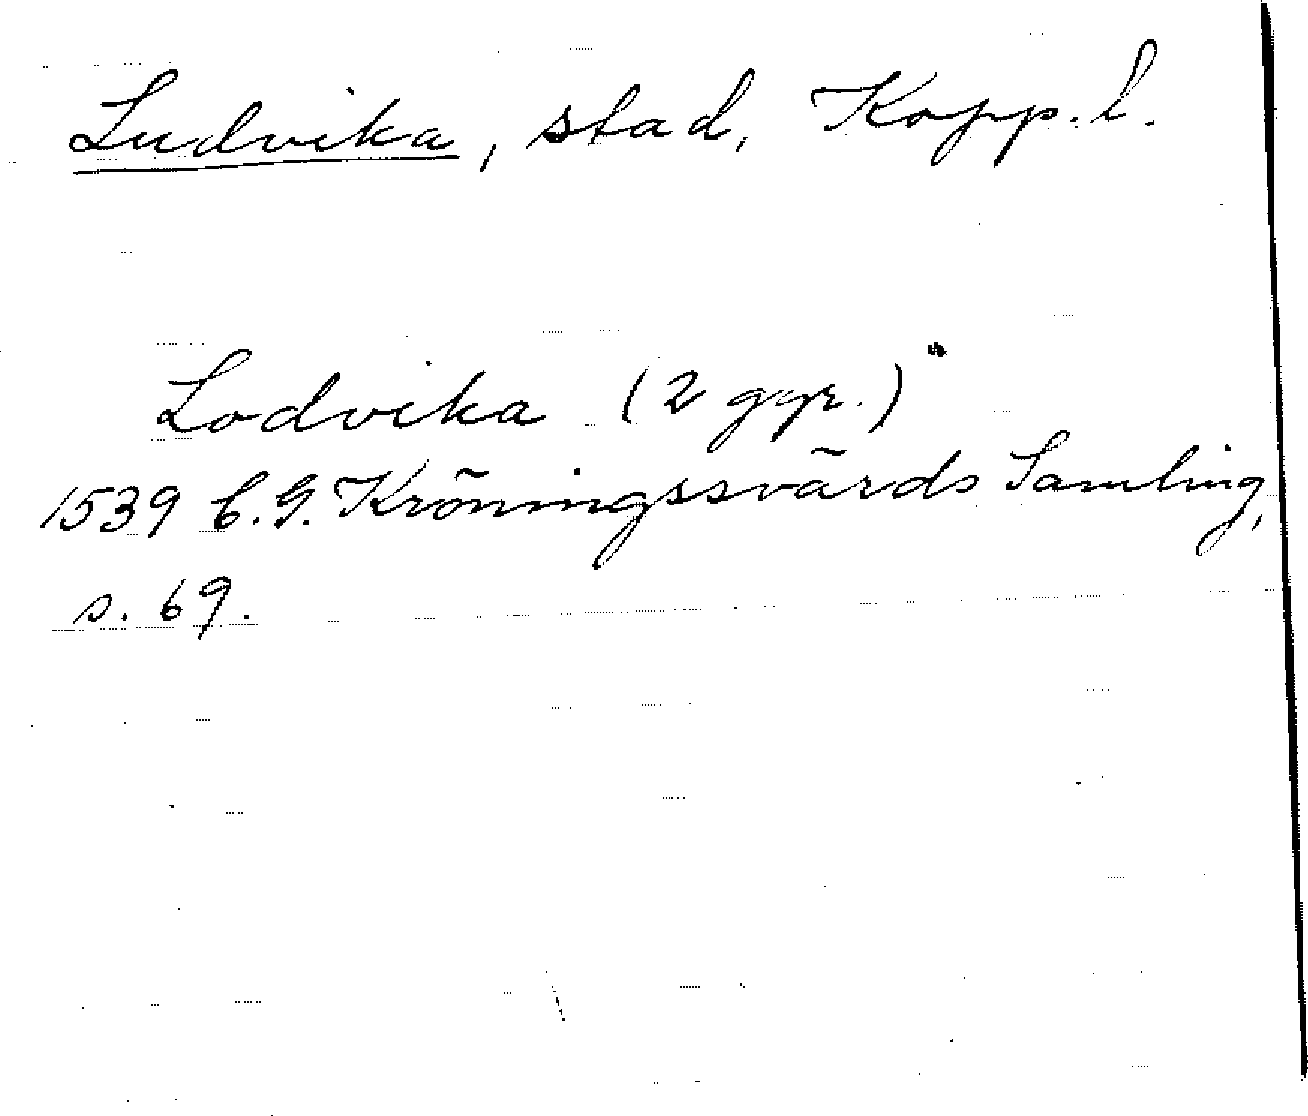 Ludvika, stad, Kopp. l.
Lodvika (2 ggr.)"
1539 C.G. Kröningssvärds Samling,
s. 69.